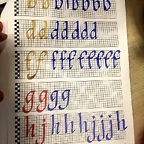 b b b i b b b b
d d d a d d d d
f f f f f f f f f
g g g g
h j h h h j j j h